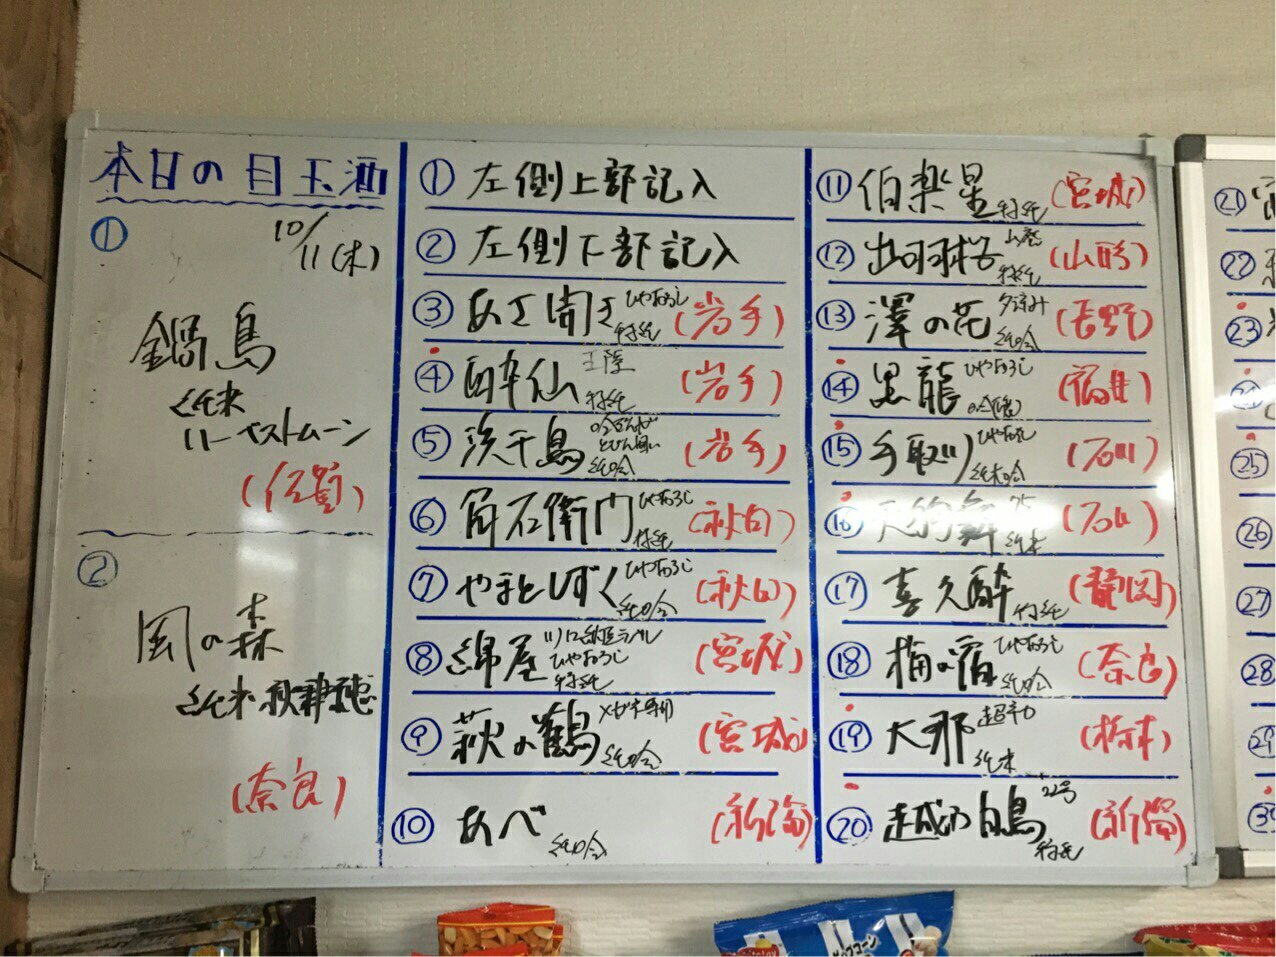 本日の目玉酒
10/11(木)
①
鍋島
純米
ハーベストムーン
(佐賀)
②
風の森
純米 秋津穂
(奈良)
① 左側上部記入
② 左側下部記入
③ あさ開き ひやおろし 特純 (岩手)
④ 酔仙 特純 (岩手)
⑤ 浜千鳥 吟ぎんが 純吟 (岩手)
⑥ 角右衛門 ひやおろし 特純 (秋田)
⑦ やまとしずく ひやおろし 純吟 (秋田)
⑧ 綿屋 ラベル ひやおろし 特純 (宮城)
⑨ 萩の鶴 メガネ専用 純吟 (宮城)
⑩ あべ 純吟 (新潟)
⑪ 伯楽星 特純 (宮城)
⑫ 出羽桜 特純 (山形)
⑬ 澤の花 夕涼み 純吟 (長野)
⑭ 黒龍 ひやおろし (福井)
⑮ 手取川 ひやおろし 純米吟 (石川)
⑯ 天狗舞 純米 (石川)
⑰ 喜久酔 特純 (静岡)
⑱ 梅の宿 ひやおろし 純吟 (奈良)
⑲ 大那 超辛口 純米 (栃木)
⑳ 越の白鳥 22号 特純 (新潟)
21
22
23
25
26
27
28
29
30